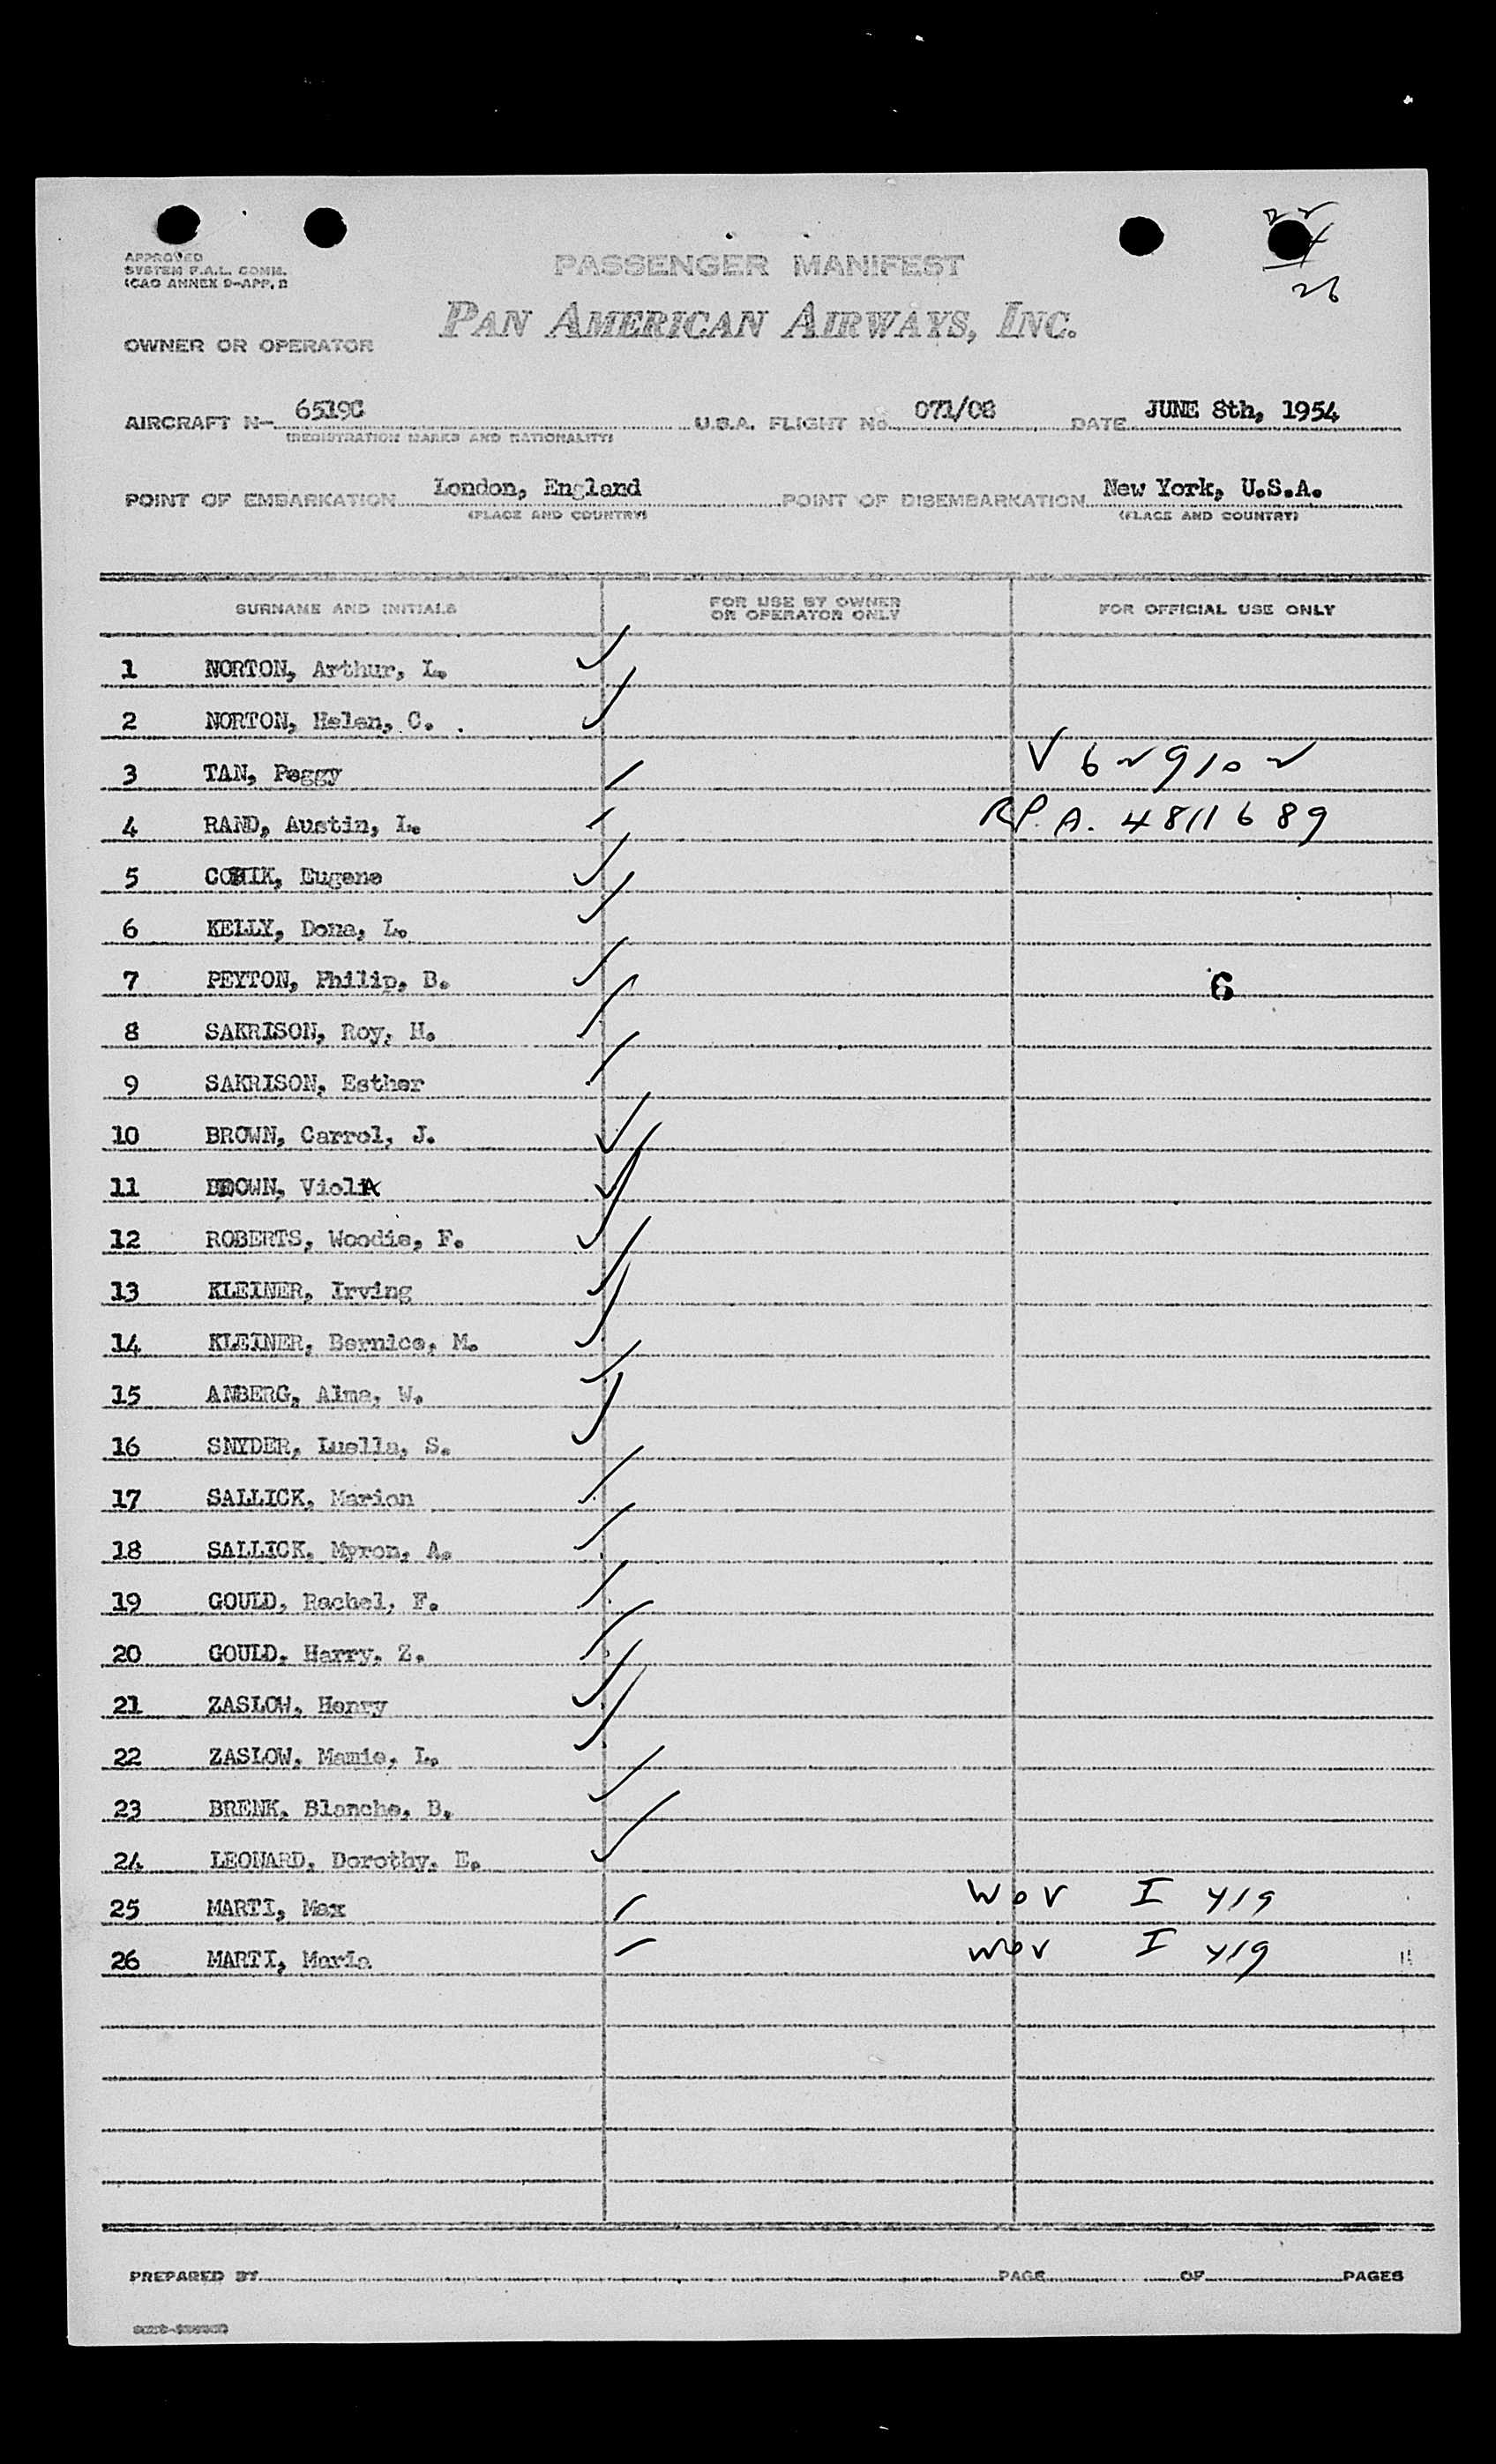 22
4
26
APPROVED
SYSTEM F.A.L. COMM.
ICAO ANNEX 9-APP. B
PASSENGER MANIFEST
PAN AMERICAN AIRWAYS, INC.
OWNER OR OPERATOR
AIRCRAFT N- 6519C U.S.A. FLIGHT NO. 071/08 DATE JUNE 8th, 1954
(REGISTRATION MARKS AND NATIONALITY)
POINT OF EMBARKATION London, England POINT OF DISEMBARKATION New York, U.S.A.
(PLACE AND COUNTRY) (PLACE AND COUNTRY)
SURNAME AND INITIALS FOR USE BY OWNER OR OPERATOR ONLY FOR OFFICIAL USE ONLY
1 NORTON, Arthur, L.
2 NORTON, Helen, C.
3 TAN, Peggy V 629102
4 RAND, Austin, L. R.P.A. 4811689
5 Eugene
6 KELLY, Dona, L.
7 PEYTON, Philip, B. 6
8 SAKRISON, Roy, H.
9 SAKRISON, Esther
10 BROWN, Carrol, J.
11 BROWN, Viola
12 ROBERTS, Woodie, F.
13 KLEINER, Irving
14 KLEINER, Bernice, M.
15 ANBERG, Alma, W.
16 SNYDER, Luella, S.
17 SALLICK, Marion
18 SALLICK, Myron, A.
19 GOULD, Rachel, F.
20 GOULD, Harry, Z.
21 ZASLOW, Henry
22 ZASLOW, Mamie, L.
23 BRENK, Blanche, B.
24 LEONARD, Dorothy, E.
25 MARTI, Max WOV I 419
26 MARTI, Maria WOV I 419
PREPARED BY PAGE OF PAGES